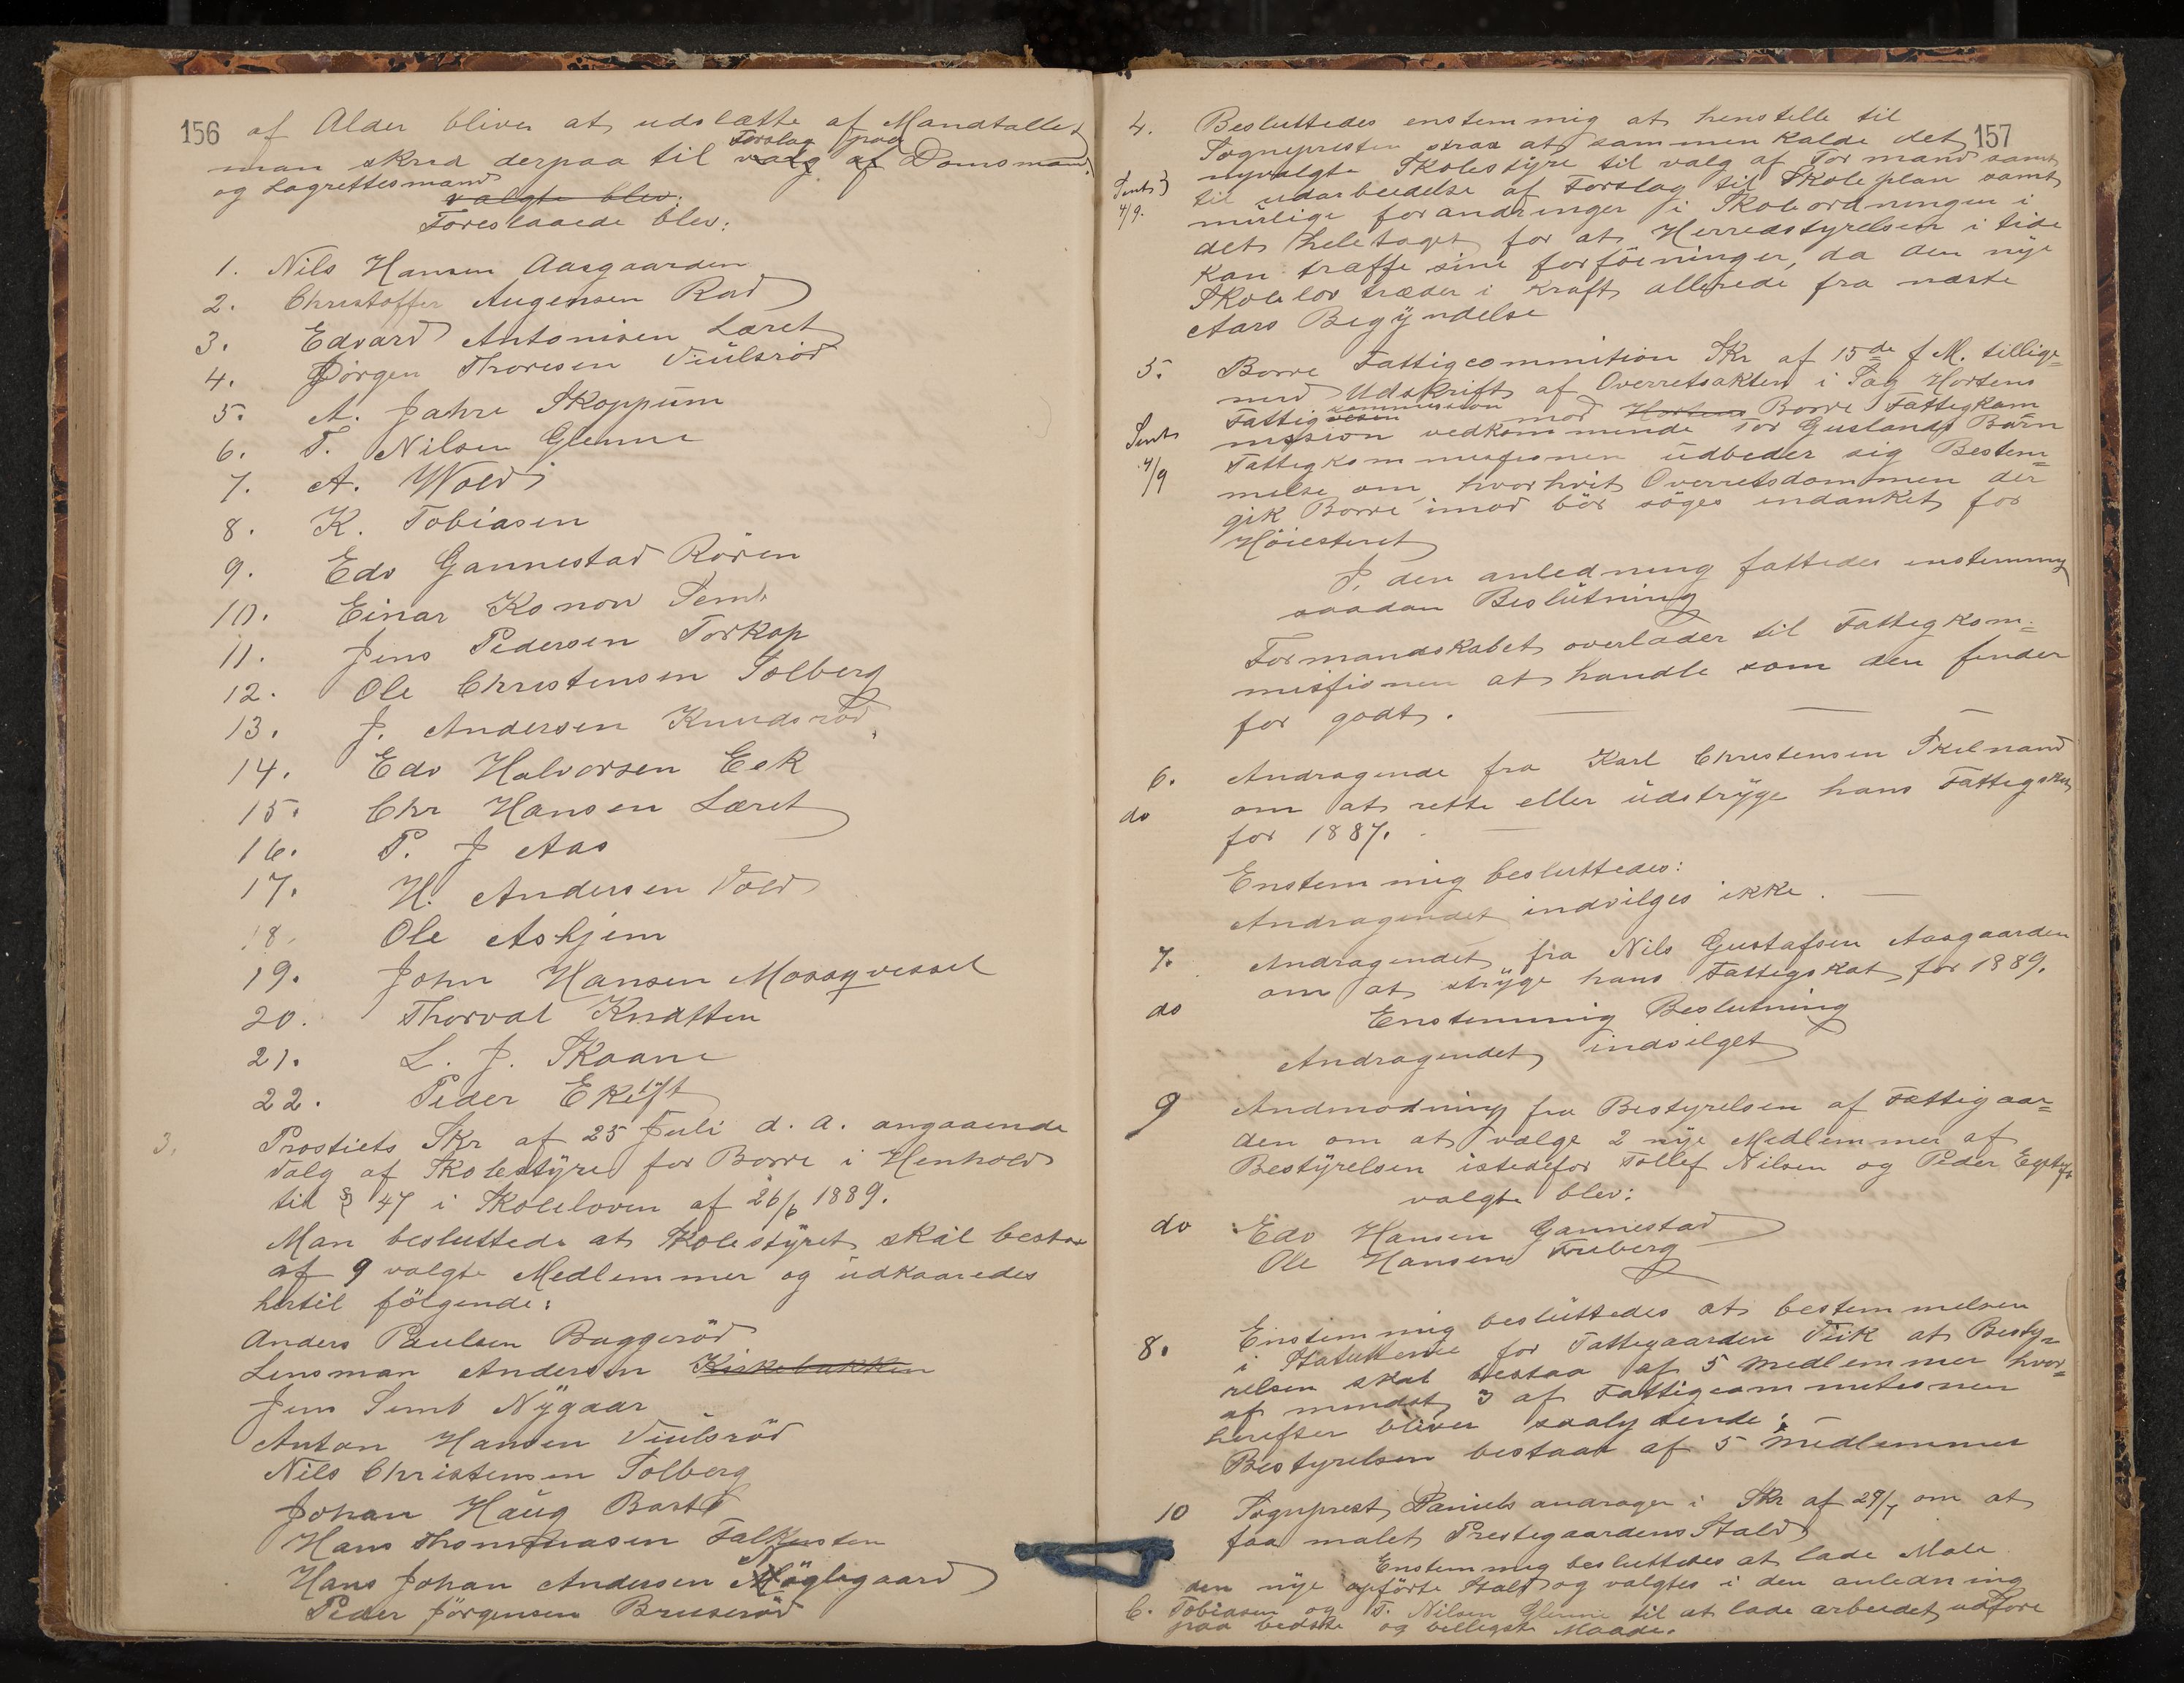 156
af Alder bliver at udslætte af Mandtallet
Forslag paa
man skred derpaa til valg af Domsmænd
og Lagrettesmænd
valgte blev:
Foreslaaede blev:
1. Nils Hansen Aasgaarden
2. Christoffer Augensen Rød
3. Edvard Antonisen Læret
4. Jörgen Thoresen Viulsröd
5. A. Jahre Skoppum
6. T. Nilsen Glenne
7. A. Wold
8. K. Tobiasen
9. Edv Gannestad Rören
10. Einar Konow Semb
11. Jens Pedersen Torkop
12. Ole Christensen Solberg
13. J. Andersen Knudsröd
14. Edv Halvorsen Eek
15. Chr Hansen Læret
16. P. J Aas
17. H. Andersen Vold
18. Ole Askjem
19. John Hansen Mossqvessel
20. Thorval Knatten
21. L. J. Skaane
22. Peder Ekityft
3. Prostiets Skr af 25 Juli d. a. angaaende
Valg af Skolestyre for Borre i Henhold
til § 47 i Skoleloven af 26/6 1889.
Man besluttede at Skolestyret skal bestaa
af 9 valgte Medlemmer og udkaaredes
hertil fölgende:
Anders Paulsen Baggeröd
Lensman Andersen Kirkebakken
Jens Semb Nygaar
Anton Hansen Viulsröd
Nils Christensen Solberg
Johan Haug Bastö
Hans Thommasen Falkensten
Hans Johan Andersen Nöglegaard
Peder Jörgensen Bruseröd
157
4. Besluttedes enstemmig at henstille til
Sognepresten strax at sammenkalde det
nyvalgte Skolestyre til valg af Formand samt
Sent 4/9. til udarbeidelse af Forslag til Skoleplan samt
mulige forandringer i Skoleordningen i
det heletaget for at Herredstyrelsen i tide
kan træffe sine forföininger, da den nye
Skolelov træder i kraft allerede fra næste
Aars Begyndelse
5. Borre Fattigcommition Skr af 15de f M. tillige=
med Udskrift af Overretsakten i Sag Hortens
kommission
Fattigvesen mod Hortens Borre Fattigkom
Sent 4/9 mission vedkommende Tor Guslands Börn
Fattigkommissionen udbeder sig Bestem=
melse om hvorhvit Overretsdommen der
gik Borre imod bör söges indanket for
Höiesteret
I den anledning fattedes enstemmig
saadan Beslutning
Formandskabet overlader til Fattigkom=
missionen at handle som den finder
for godt.
6. Andragende fra Karl Christensen Skilnand
do om at rette eller udstryge hans Fattigskat
for 1887.
Enstemmig besluttedes:
Andragendet indvilges ikke.
7. Andragendet fra Nils Gustafsen Aasgaarden
om at stryge hans Fattigskat for 1889.
do Enstemmig Beslutning
Andragendet indvilget
9 Andmodning fra Bestyrelsen af Fattiggaar=
den om at vælge 2 nye Medlemmer af
Bestyrelsen istedefor Tollef Nilsen og Peder
valgte blev:
do Edv Hansen Gannestad
Ole Hansen Freberg
8. Enstemmig besluttedes at bestemmelsen
i Statutterne for Fattegaarden Viik at Besty=
relsen skal bestaa af 5 Medlemmer hvor=
af mindst 3 af Fattigcommitesnen
herefter bliver saalydende:
Bestyrelsen bestaar af 5 medlemmer
10 Sogneprest Daniels andrager i Skr af 29/7 om at
faa malet Prestegaardens Stald
Enstemmig besluttedes at lade Male
den nye opförte Stald og valgtes i den anledning
C. Tobiasen og T. Nilsen Glenne til at lade arbeidet udföre
paa bedste og billigste Maade.